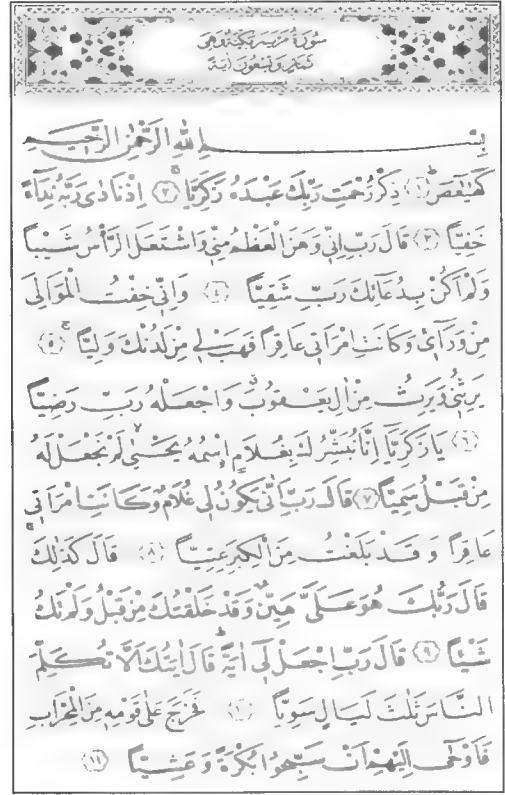 سُورَةُ مَرْيَمَ مَكِّيَّةٌ وَهِيَ
ثَمَانٍ وَتِسْعُونَ اٰيَةً
بِسْمِ اللّٰهِ الرَّحْمٰنِ الرَّحِيمِ
كٓهٰيٰعٓصٓ ﴿١﴾ ذِكْرُ رَحْمَتِ رَبِّكَ عَبْدَهُ زَكَرِيَّا ﴿٢﴾ اِذْ نَادٰى رَبَّهُ نِدَٓاءً
خَفِيًّا ﴿٣﴾ قَالَ رَبِّ اِنّٖي وَهَنَ الْعَظْمُ مِنّٖي وَاشْتَعَلَ الرَّأْسُ شَيْبًا
وَلَمْ اَكُنْ بِدُعَٓائِكَ رَبِّ شَقِيًّا ﴿٤﴾ وَاِنّٖي خِفْتُ الْمَوَالِيَ
مِنْ وَرَٓاءٖي وَكَانَتِ امْرَاَتٖي عَاقِرًا فَهَبْ لٖي مِنْ لَدُنْكَ وَلِيًّا ﴿٥﴾
يَرِثُنٖي وَيَرِثُ مِنْ اٰلِ يَعْقُوبَ وَاجْعَلْهُ رَبِّ رَضِيًّا
﴿٦﴾ يَا زَكَرِيَّٓا اِنَّا نُبَشِّرُكَ بِغُلَامٍ اِسْمُهُ يَحْيٰى لَمْ نَجْعَلْ لَهُ
مِنْ قَبْلُ سَمِيًّا ﴿٧﴾ قَالَ رَبِّ اَنّٰى يَكُونُ لٖي غُلَامٌ وَكَانَتِ امْرَاَتٖي
عَاقِرًا وَقَدْ بَلَغْتُ مِنَ الْكِبَرِ عِتِيًّا ﴿٨﴾ قَالَ كَذٰلِكَ
قَالَ رَبُّكَ هُوَ عَلَيَّ هَيِّنٌ وَقَدْ خَلَقْتُكَ مِنْ قَبْلُ وَلَمْ تَكُ
شَيْـًٔا ﴿٩﴾ قَالَ رَبِّ اجْعَلْ لٖٓي اٰيَةً قَالَ اٰيَتُكَ اَلَّا تُكَلِّمَ
النَّاسَ ثَلٰثَ لَيَالٍ سَوِيًّا ﴿١٠﴾ فَخَرَجَ عَلٰى قَوْمِهٖ مِنَ الْمِحْرَابِ
فَاَوْحٰٓى اِلَيْهِمْ اَنْ سَبِّحُوا بُكْرَةً وَعَشِيًّا ﴿١١﴾